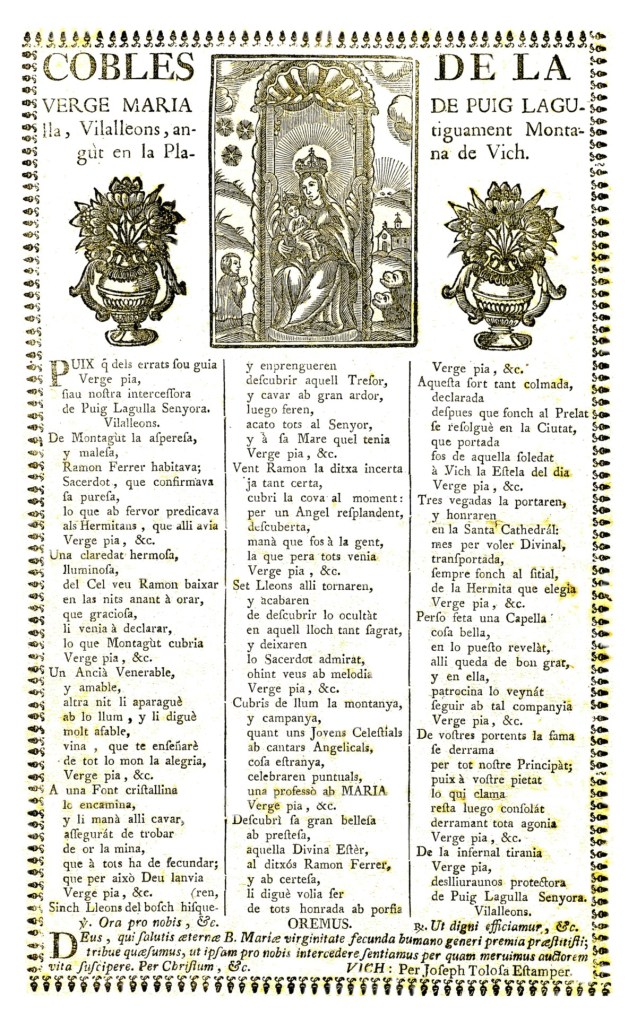 COBLES DE LA
VERGE MARIA DE PUIG LAGU-
lla, Vilalleons, an- tiguament Monta-
gùt en la Pla- na de Vich.
PUIX q̃ dels errats ſou guia
Verge pia,
ſiau noſtra interceſſora
de Puig Lagulla Senyora.
Vilalleons.
De Montagùt la aſpereſa,
y maleſa,
Ramon Ferrer habitava;
Sacerdot, que confirmava
ſa pureſa,
lo que ab fervor predicava
als Hermitans, que alli avia
Verge pia, &c.
Una claredat hermoſa,
lluminoſa,
del Cel veu Ramon baixar
en las nits anant à orar,
que gracioſa,
li venia à declarar,
lo que Montagùt cubria
Verge pia, &c.
Un Ancià Venerable,
y amable,
altra nit li aparaguè
ab lo llum, y li diguè
molt afable,
vina, que te enſeñarè
de tot lo mon la alegria,
Verge pia, &c.
A una Font criſtallina
le encamina,
y li manà alli cavar,
aſſegurát de trobar
de or la mina,
que à tots ha de fecundar;
que per això Deu lanvia
Verge pia, &c. (ren,
Sinch Lleons del boſch hiſque-
y enprengueren
deſcubrir aquell Treſor,
y cavar ab gran ardor,
luego feren,
acato tots al Senyor,
y à ſa Mare quel tenia
Verge pia, &c.
Vent Ramon la ditxa incerta
ja tant certa,
cubri la cova al moment:
per un Angel reſplandent,
deſcuberta,
manà que fos à la gent,
la que pera tots venia
Verge pia, &c.
Set Lleons alli tornaren,
y acabaren
de deſcubrir lo ocultàt
en aquell lloch tant ſagrat,
y deixaren
lo Sacerdot admirat,
ohint veus ab melodia
Verge pia, &c.
Cubris de llum la montanya,
y campanya,
quant uns Jovens Celeſtials
ab cantars Angelicals,
coſa eſtranya,
celebraren puntuals,
una profeſsò ab MARIA
Verge pia, &c.
Deſcubrì ſa gran belleſa
ab preſteſa,
aquella Divina Eſtèr,
al ditxós Ramon Ferrer,
y ab certeſa,
li diguè volia ſer
de tots honrada ab porfia
Verge pia, &c.
Aqueſta ſort tant colmada,
declarada
deſpues que fonch al Prelat
ſe reſolguè en la Ciutat,
que portada
fos de aquella ſoledat
à Vich la Eſtela del dia
Verge pia, &c.
Tres vegadas la portaren,
y honraren
en la Santa Cathedrál:
mes per voler Divinal,
tranſportada,
ſempre fonch al ſitial,
de la Hermita que elegia
Verge pia, &c.
Perſo feta una Capella
coſa bella,
en lo pueſto revelàt,
alli queda de bon grat,
y en ella,
patrocina lo veynát
ſeguir ab tal companyia
Verge pia, &c.
De voſtres portents la fama
se derrama
per tot noſtre Principàt;
puix à voſtre pietat
lo qui clama
reſta luego conſolát
derramant tota agonia
Verge pia, &c.
De la infernal tirania
Verge pia,
deslliuraunos protectora
de Puig Lagulla Senyora.
Vilalleons.
℣. Ora pro nobis, &c. OREMUS. ℟. Ut digni efficiamur, &c.
DEus, qui ſalutis æternæ B. Mariæ virginitate fecunda humano generi premia præſtitiſti;
tribue quæſumus, ut ipſam pro nobis intercedere ſentiamus per quam meruimus auctorem
vita ſuſcipere. Per Chriſtum, &c. VICH: Per Joſeph Toloſa Eſtamper.